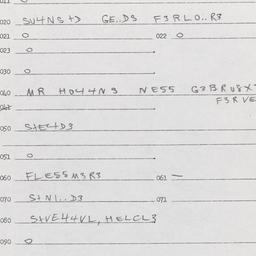 020 SU4NS+> GE..DS F3RLO..R3
021 O 022 O
023 O
030 O
040 MR HO44NS NESS G3BRU8X
F3RVE
050 S+E4D3
051 O
060 FLESSM3R3 061 —
070 S+NI..D3 071
080 S+VE44VL, HELCL3
090 O